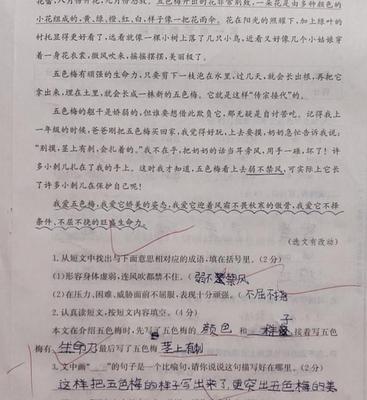 五色梅开出的花非常别致,一朵花是由多种颜色的
小花组成的,黄、绿、橙、红、白,样子像一把花雨伞。花在阳光的照耀下,加上绿叶的
衬托显得更好看了,迷看就像一棵小树上落了几只鸟,近看又好像几个小姑娘穿
着一身花衣裳,微风吹来,摇摇摆摆,美丽极了。
五色梅有顽强的生命力,只要剪下一枝泡在水里,过几天,就会长出根,再把它
拿出来,埋在土里,就会长成一株新的五色梅。它就是这样“传宗接代”的。
五色梅的躯干是娇弱的,但谁要想借此欺负它,那无疑是自讨苦吃。记得我上
一年级的时候,爸爸刚把五色梅买回家,我觉得好玩,上去要摸,奶奶急忙告诉我说:
“别摸,茎上有刺,会扎着的。”我不在乎,把奶奶的话当耳旁风,用手一碰,坏了!许
多小刺儿扎在了我的手上。这时我才知道,五色梅看上去弱不禁风,可实际上它长
了许多小刺儿在保护自己呢!
我爱五色梅,我爱它娇美的姿态;我爱它迎着风霜不畏秋寒的傲骨,我爱它不择
条件、不屈不挠的旺盛生命力。
(选文有改动)
1.从短文中找出与下面意思相对应的成语,填在括号里。(2分)
(1)形容身体虚弱,连风吹都禁不住。(弱不禁风)
(2)在压力、困难、威胁面前不屈服,表现十分顽强。(不屈不挠)
2.认真读短文,按短文内容填空。(4分)
本文在介绍五色梅时,先写了五色梅的 颜色 和 样子 接着写五色
梅有 生命力 最后写了五色梅 茎上有刺
3.文中画“﹏﹏”的句子是一个比喻句,请你说说这句描写好在哪里。(2分)
这样把五色梅的样子写出来了,更突出五色梅的美